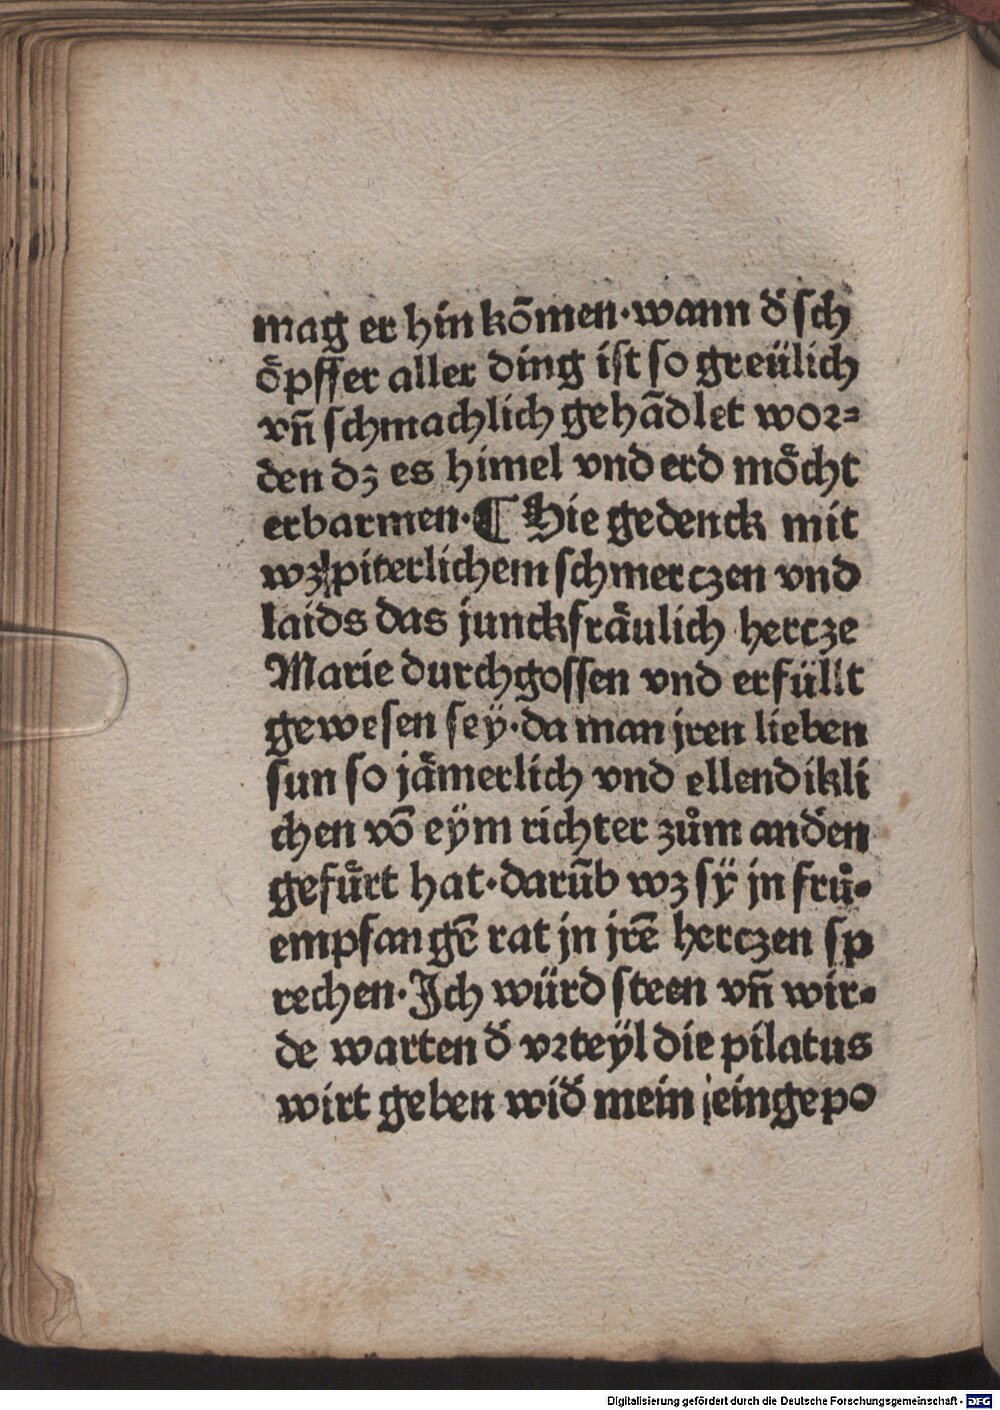 mag er hin kõmen·wann đ sch
oͤpffer aller ding ist so greülich
vn̄ schmachlich gehãdlet wor⸗
den dz es himel vnd erd moͤcht
erbarmen·¶ Hie gedenck mit
wz piterlichem schmerczen vnd
laids das junckfraͤulich hercze
Marie durchgossen vnd erfüllt
gewesen seÿ·da man jren lieben
sun so jaͤmerlich vnd ellendikli
chen võ eÿm richter zům anđen
gefuͤrt hat·darũb wz sÿ jn frů⸗
empfangẽ rat jn jrẽ herczen sp
rechen·Ich würd steen vn̄ wir⸗
de warten đ vrteÿl die pilatus
wirt geben wiđ mein eingepo
Digitalisierung gefördert durch die Deutsche Forschungsgemeinschaft - DFG